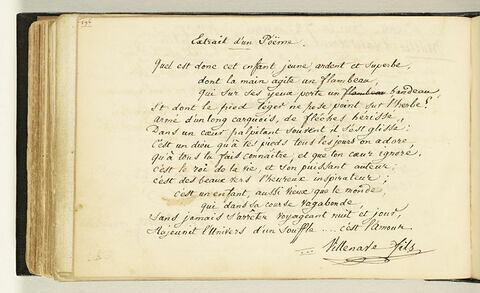 Extrait d'un Poëme.
Quel est donc cet enfant jeune ardent et superbe,
dont la main agite un flambeau,
Qui sur ses yeux porte un flambeau bandeau,
Et dont le pied léger ne pese point sur l'herbe?
Armé d'un long carquois, de flèches hérissé,
Dans un cœur palpitant souvent il s'est glissé:
C'est un dieu qu'à tes pieds tous les jours on adore,
Qu'à tous tu fais connaître, et que ton cœur ignore,
C'est le roi de la vie, et son puissant auteur
C'est des beaux vers l'heureux inspirateur;
C'est un enfant, aussi vieux que le monde,
qui dans sa course vagabonde,
Sans jamais s'arrêter voyageant nuit et jour,
Rajeunit l'Univers d'un Souffle .... c'est l'Amour.
Villenave fils